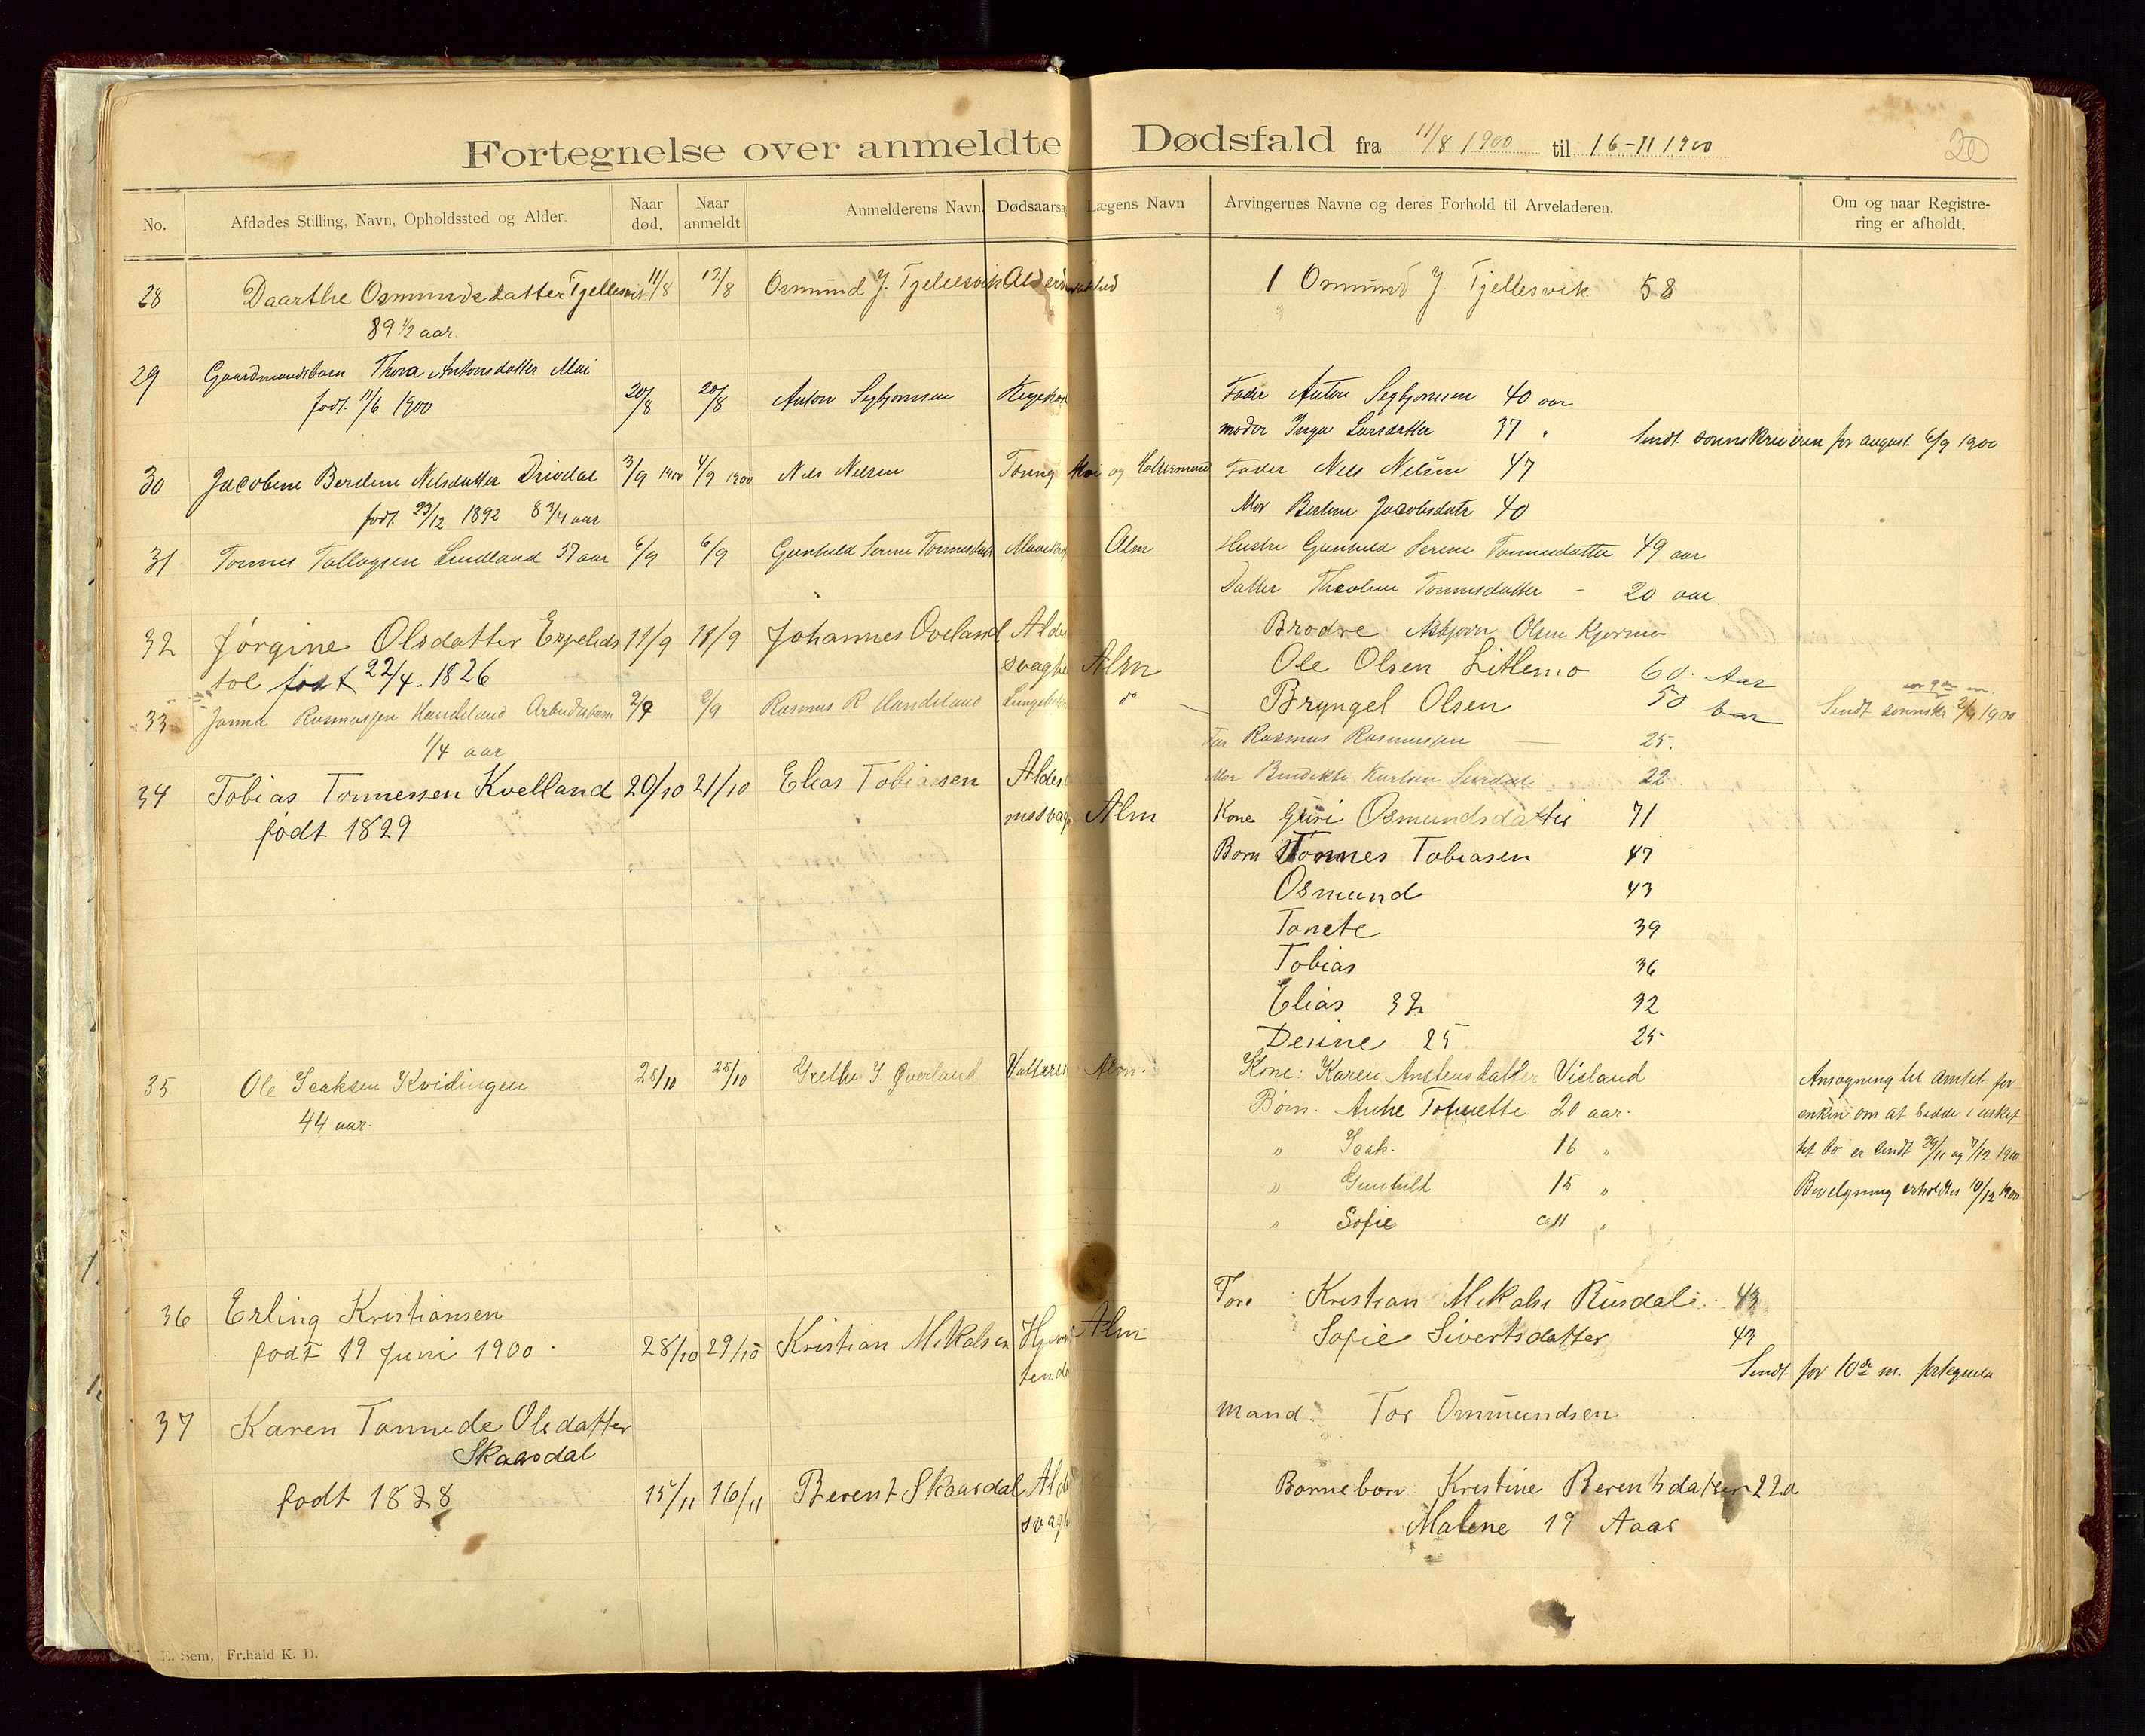 Fortegnelse over anmeldte Dødsfald fra 11/8 1900 til 16-11 1900
20
No.
Afdødes Stilling, Navn, Opholdssted og Alder.
Naar død.
Naar anmeldt
Anmelderens Navn.
Dødsaarsa
Lægens Navn
Arvingernes Navne og deres Forhold til Arveladeren.
Om og naar Registre-
ring er afholdt.
28 Daarthe Osmundsdatter Tjellesvik 11/8 12/8 Osmund J. Tjellesvik 1 Osmund J. Tjellesvik 58
89 1/2 aar.
29 Gaardmandsbarn Thora Antonsdatter Moi
født 11/6 1900 20/8 20/8 Anton Segbjornsen Fader Anton Segbjornsen 40 aar
moder Inga Larsdatter 37 Sendt sorenskriveren for august 6/9 1900
30 Jacobine Berdine Nelsdatter Drivdal 3/9 1900 4/9 1900 Nels Nelsen Fader Nels Nelsen 47
født 23/12 1892 8 3/4 aar Mor Berline Jacobsdatr 40
31 Tonnes Tallagsen Lindland 57 aar 6/9 6/9 Gunhild Serine Tonnesdatr Alm Hustru Gunhild Serine Tonnesdatter 49 aar
Datter Theoline Tonnesdatter - 20 aar.
32 Jørgine Olsdatter Erpelds 11/9 11/9 Johannes Oveland Alder Brodre Asbjorn Olsen Kjormo
tol født 22/4. 1826 svaghe Alm Ole Olsen Litlemo 60. Aar
Bryngel Olsen 50 bar
33 Janna Rasmusjen Handeland Arbeidsbarn 2/9 2/9 Rasmus R Handeland do Sendt sorinskr 2/9 1900
1/4 aar Far Rasmus Rasmusjen 25.
Mor Bendikte Karlsen 22.
34 Tobias Tonnessen Kvelland 20/10 21/10 Elias Tobiassen Alder
født 1829 mssvag Alm Kone Guri Osmundsdatter 71
Born Tonnes Tobiasen 47
Osmund 43
Tonete 39
Tobias 36
Elias 32 32
Desine 25 25
35 Ole Isaksen Kvidingen 25/10 25/10 Grethe I. Qverland Alm. Kone: Karen Anstensdatter Visland Ansøgning til Amtet for
44 aar. Børn. Anne Tonette 20 aar. enken om at sidde i uskif
" Isak. 16 " tet bo er sendt 29/11 og 7/12 1900
" Gunhild 15 " Bevelgning erholdtes 10/12 1900
" Sofie 11 "
36 Erling Kristiansen For. Kristian Mikalse Rusdal 43
født 19 Juni 1900. 28/10 29/10 Kristian Mikalsen Alm Sofie Sivertsdatter 43
Sendt for 10de m.
37 Karen Tonnede Olsdatter mand Tor Ommundsen
Skaardal
født 1828 15/11 16/11 Berent Skaardal Ald Bornebørn Kristine Berentsdatter 22 a
svagh Malene 19 Aaar
E. Sem, Fr.hald K. D.